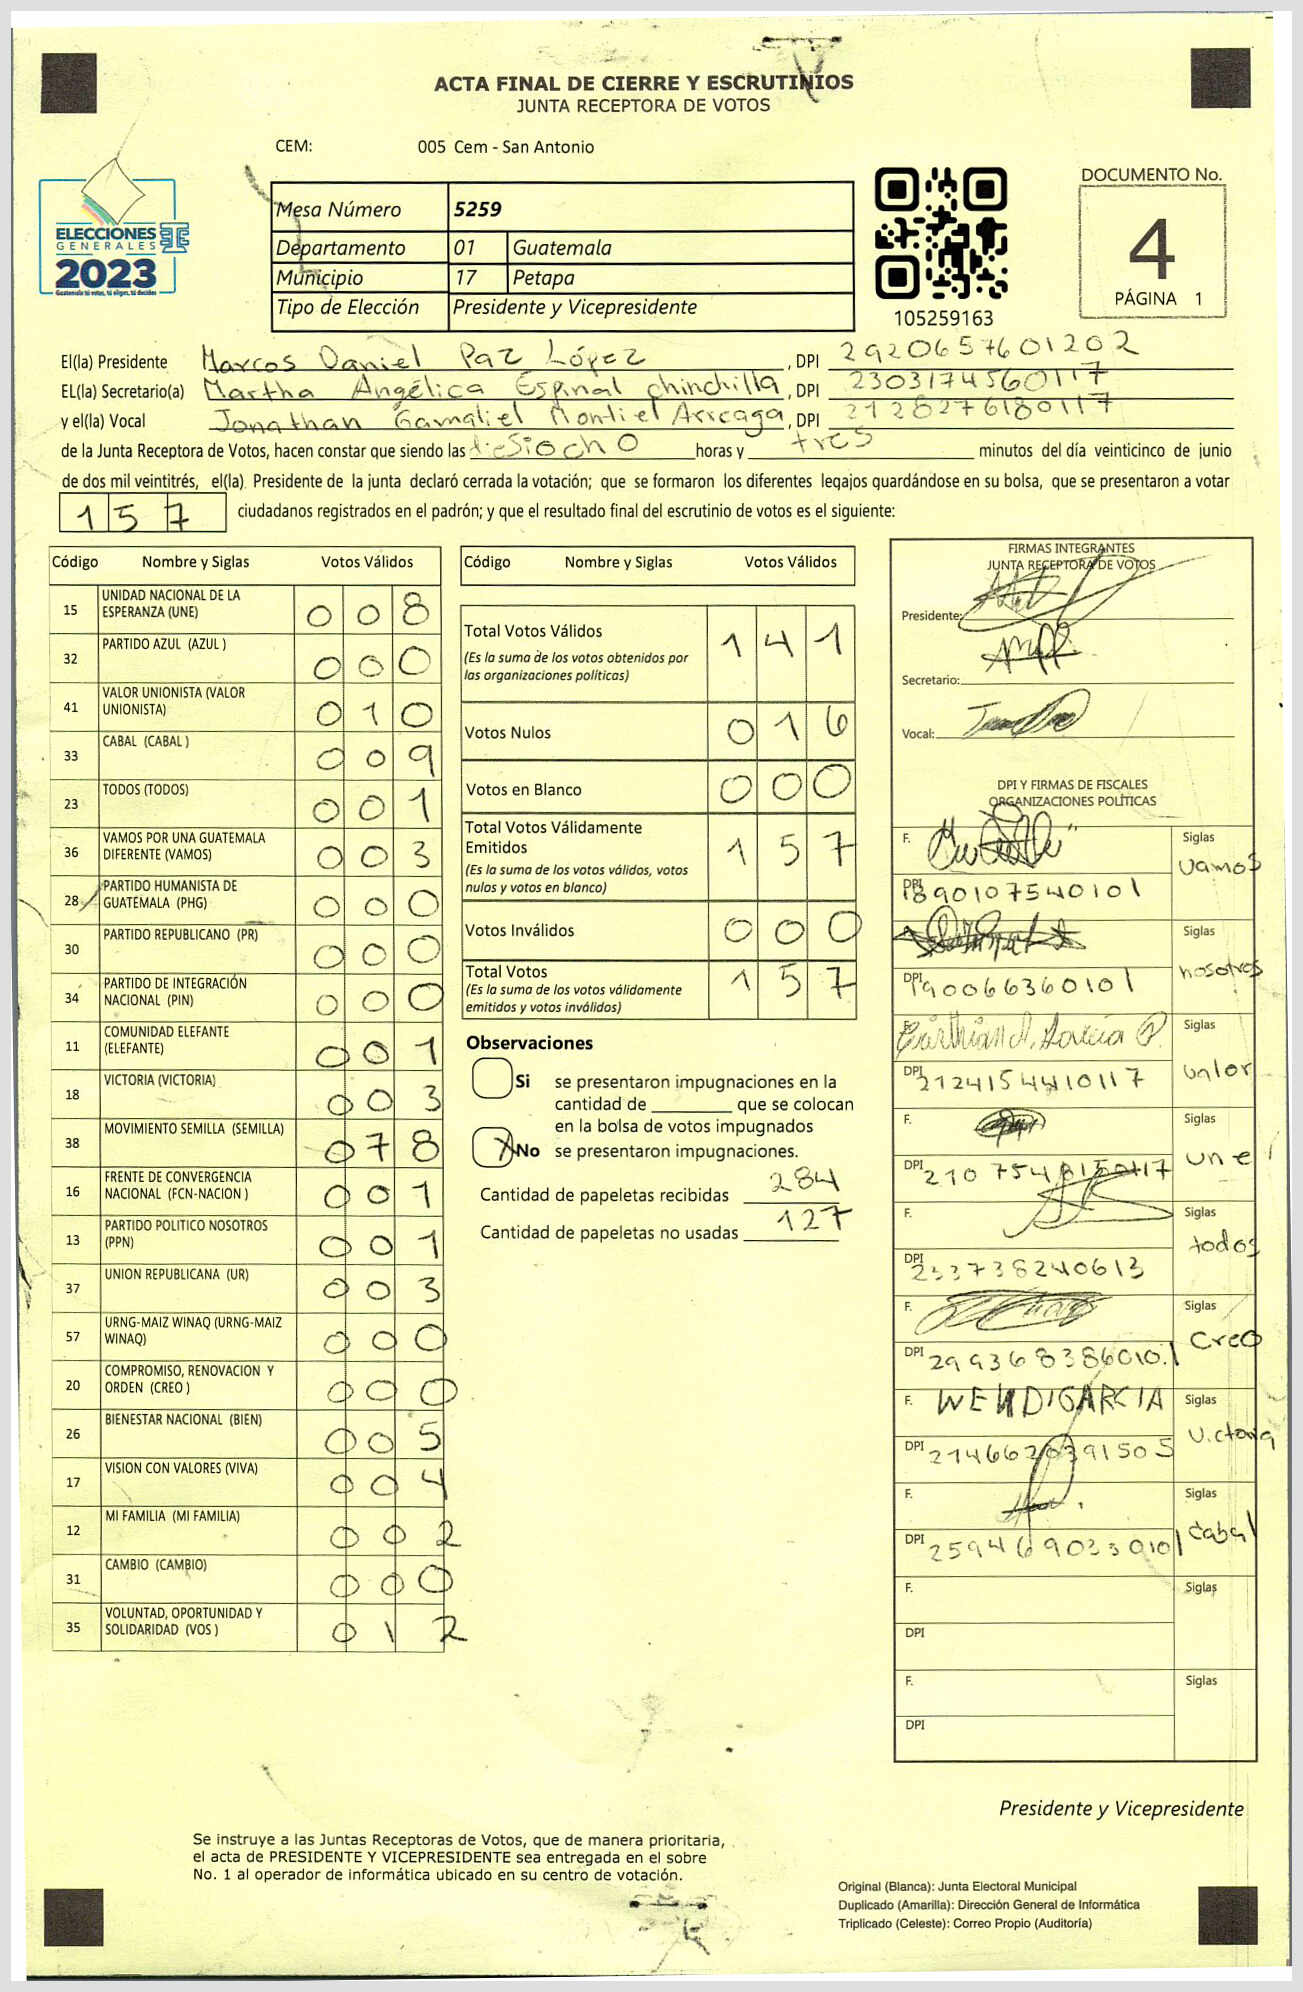 ACTA FINAL DE CIERRE Y ESCRUTINIOS
JUNTA RECEPTORA DE VOTOS
CEM: 005 Cem - San Antonio
ELECCIONES
GENERALES
2023
Guatemala tú votas, tú eliges, tú decides
Mesa Número 5259
Departamento 01 Guatemala
Municipio 17 Petapa
Tipo de Elección Presidente y Vicepresidente
105259163
DOCUMENTO No.
4
PÁGINA 1
El(la) Presidente Marcos Daniel Paz López , DPI 2920657601202
EL(la) Secretario(a) Martha Angélica Espinal chinchilla , DPI 2303174560117
y el(la) Vocal Jonathan Gamaliel Montiel Arreaga , DPI 2128276180117
de la Junta Receptora de Votos, hacen constar que siendo las diesiocho horas y tres minutos del día veinticinco de junio
de dos mil veintitrés, el(la) Presidente de la junta declaró cerrada la votación; que se formaron los diferentes legajos quardándose en su bolsa, que se presentaron a votar
157 ciudadanos registrados en el padrón; y que el resultado final del escrutinio de votos es el siguiente:
Código Nombre y Siglas Votos Válidos
15 UNIDAD NACIONAL DE LA ESPERANZA (UNE) 008
32 PARTIDO AZUL (AZUL ) 000
41 VALOR UNIONISTA (VALOR UNIONISTA) 010
33 CABAL (CABAL ) 009
23 TODOS (TODOS) 001
36 VAMOS POR UNA GUATEMALA DIFERENTE (VAMOS) 003
28 PARTIDO HUMANISTA DE GUATEMALA (PHG) 000
30 PARTIDO REPUBLICANO (PR) 000
34 PARTIDO DE INTEGRACIÓN NACIONAL (PIN) 000
11 COMUNIDAD ELEFANTE (ELEFANTE) 001
18 VICTORIA (VICTORIA) 003
38 MOVIMIENTO SEMILLA (SEMILLA) 078
16 FRENTE DE CONVERGENCIA NACIONAL (FCN-NACION ) 001
13 PARTIDO POLITICO NOSOTROS (PPN) 001
37 UNION REPUBLICANA (UR) 003
57 URNG-MAIZ WINAQ (URNG-MAIZ WINAQ) 000
20 COMPROMISO, RENOVACION Y ORDEN (CREO ) 000
26 BIENESTAR NACIONAL (BIEN) 005
17 VISION CON VALORES (VIVA) 004
12 MI FAMILIA (MI FAMILIA) 002
31 CAMBIO (CAMBIO) 000
35 VOLUNTAD, OPORTUNIDAD Y SOLIDARIDAD (VOS ) 012
Código Nombre y Siglas Votos Válidos
Total Votos Válidos 141
(Es la suma de los votos obtenidos por
las organizaciones políticas)
Votos Nulos 016
Votos en Blanco 000
Total Votos Válidamente
Emitidos 157
(Es la suma de los votos válidos, votos
nulos y votos en blanco)
Votos Inválidos 000
Total Votos 157
(Es la suma de los votos válidamente
emitidos y votos inválidos)
Observaciones
Si se presentaron impugnaciones en la
cantidad de ________ que se colocan
en la bolsa de votos impugnados
X No se presentaron impugnaciones.
Cantidad de papeletas recibidas 284
Cantidad de papeletas no usadas 127
FIRMAS INTEGRANTES
JUNTA RECEPTORA DE VOTOS
Presidente:
Secretario:
Vocal:
DPI Y FIRMAS DE FISCALES
ORGANIZACIONES POLÍTICAS
F. Siglas vamos
DPI 1890107540101
Siglas nosotros
DPI 190066360101
F. Siglas valor
DPI 2124154410117
F. Siglas une
DPI
F. Siglas todos
DPI 233738240613
F. Siglas Creo
DPI 2993683860101
F. WENDIGARCIA Siglas Victoria
DPI 2146620391505
F. Siglas Cabal
DPI 2594690330101
F. Siglas
DPI
F. Siglas
DPI
Presidente y Vicepresidente
Se instruye a las Juntas Receptoras de Votos, que de manera prioritaria,
el acta de PRESIDENTE Y VICEPRESIDENTE sea entregada en el sobre
No. 1 al operador de informática ubicado en su centro de votación.
Original (Blanca): Junta Electoral Municipal
Duplicado (Amarilla): Dirección General de Informática
Triplicado (Celeste): Correo Propio (Auditoría)